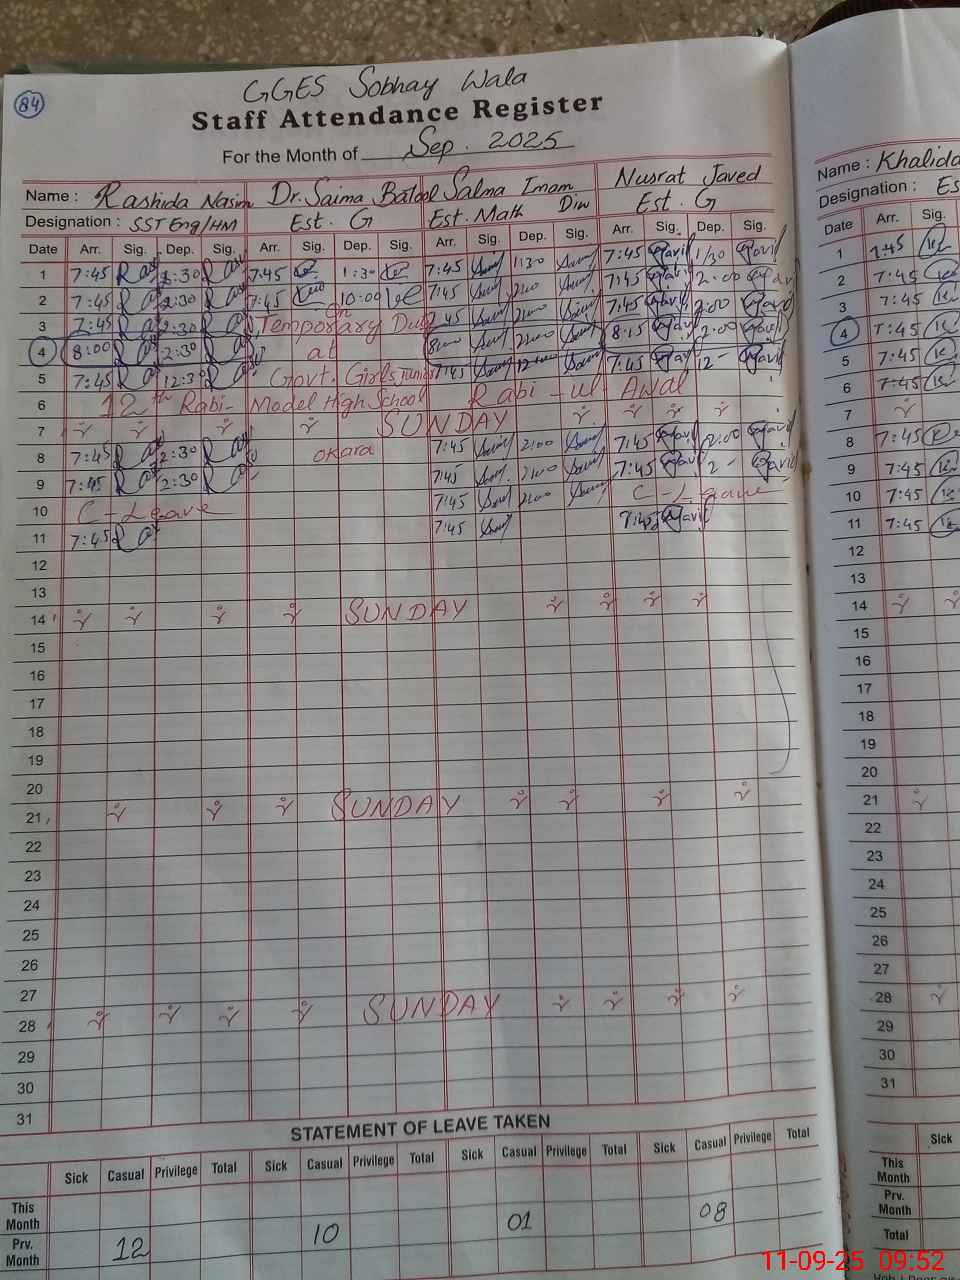 84
GGES Sobhay Wala
Staff Attendance Register
For the Month of Sep. 2025
Name : Rashida Nasim Dr. Saima Batool Salma Imam Nusrat Javed
Designation : SST Eng/HM Est. G Est. Math Est. G
Date Arr. Sig. Dep. Sig. Arr. Sig. Dep. Sig. Arr. Sig. Dep. Sig. Arr. Sig. Dep. Sig.
1 7:45 1:30 7:45 1:30 7:45 1:30 7:45 1/30
2 7:45 2:30 7:45 10:00 7:45 2:00 7:45 2:00
3 7:45 2:30 Temporary Duty On 7:45 2:00 7:45 2:00
4 8:00 2:30 at 8:00 2:00 8:15 2:00
5 7:45 12:30 Govt. Girls Junior 7:45 12:00 7:45 12-
6 12th Rabi- Model High School Rabi-ul Awal
7 SUNDAY
8 7:45 2:30 okara 7:45 2:00 7:45 2:00
9 7:45 2:30 7:45 2:00 7:45 2-
10 C-Leave 7:45 2:00 C-Leave
11 7:45 7:45 7:45
12
13
14 SUNDAY
15
16
17
18
19
20
21 SUNDAY
22
23
24
25
26
27
28 SUNDAY
29
30
31
STATEMENT OF LEAVE TAKEN
Sick Casual Privilege Total Sick Casual Privilege Total Sick Casual Privilege Total Sick Casual Privilege Total
This Month
Prv. Month 12 10 01 08
Name : Khalida
Designation :
Arr. Sig.
1 7:45
2 7:45
3 7:45
4 7:45
5 7:45
6 7:45
7
8 7:45
9 7:45
10 7:45
11 7:45
12
13
14
15
16
17
18
19
20
21
22
23
24
25
26
27
28
29
30
31
Sick
This Month
Prv. Month
Total
11-09-25 09:52